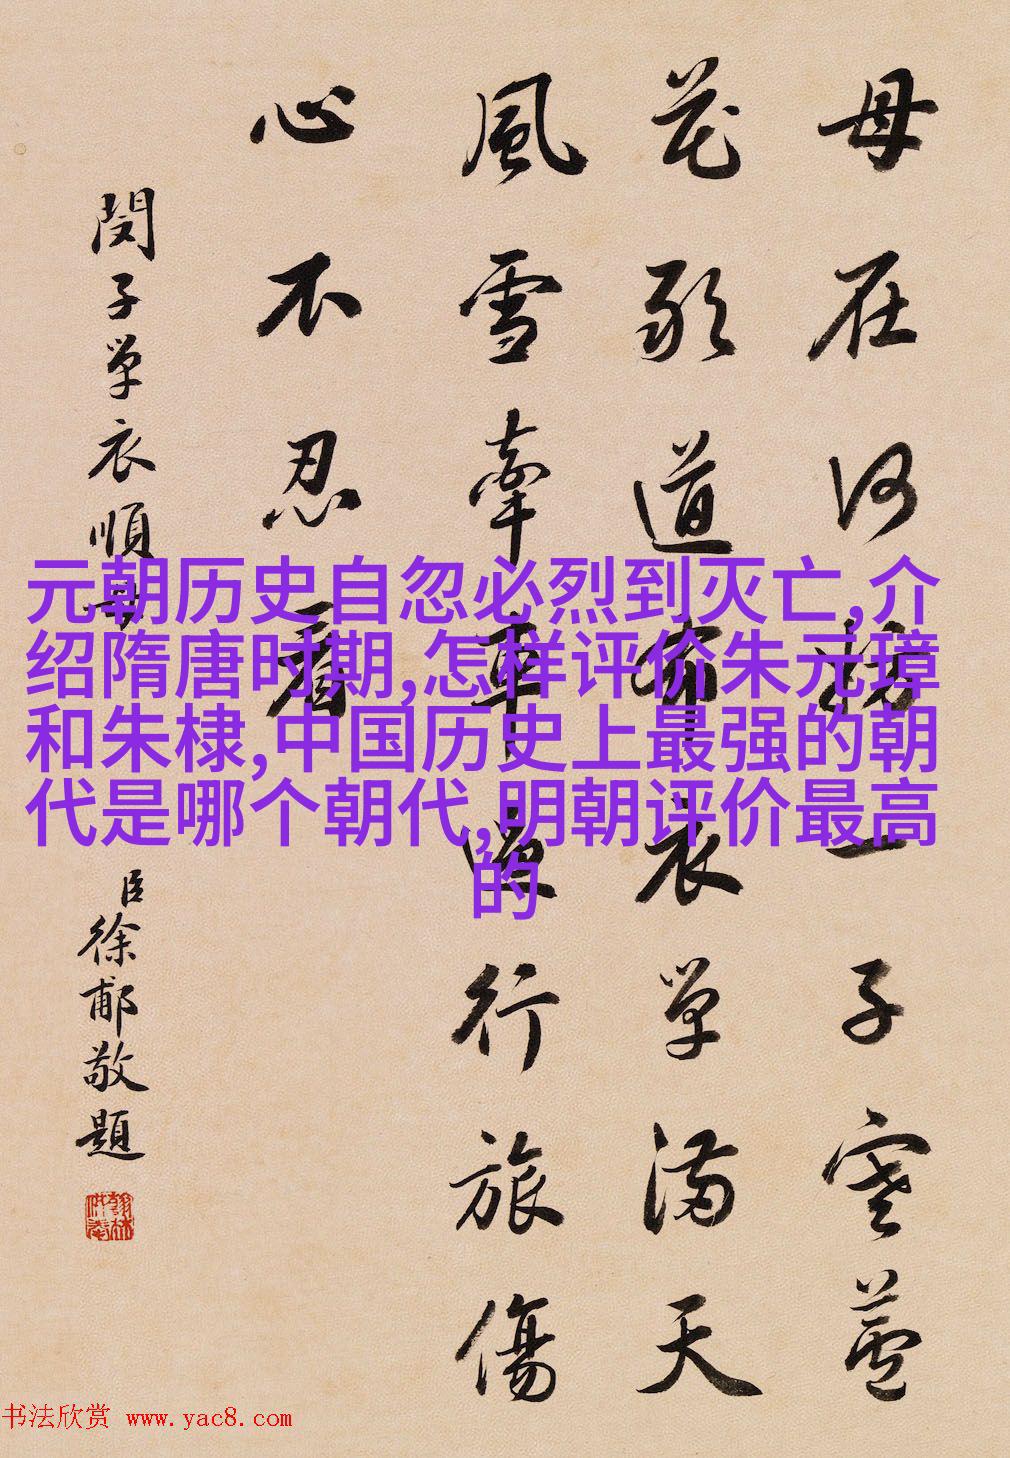 母在何妨一子寒蘆
花敢道布衣單滿天
風雪牽車行旅傷
心不忍看
閔子單衣順母
臣徐郙敬題
翰林供奉
元朝历史自忽必烈到灭亡,介
绍隋唐时期,怎样评价朱元璋
和朱棣,中国历史上最强的朝
代是哪个朝代,明朝评价最高
的
书法欣赏 www.yac8.com